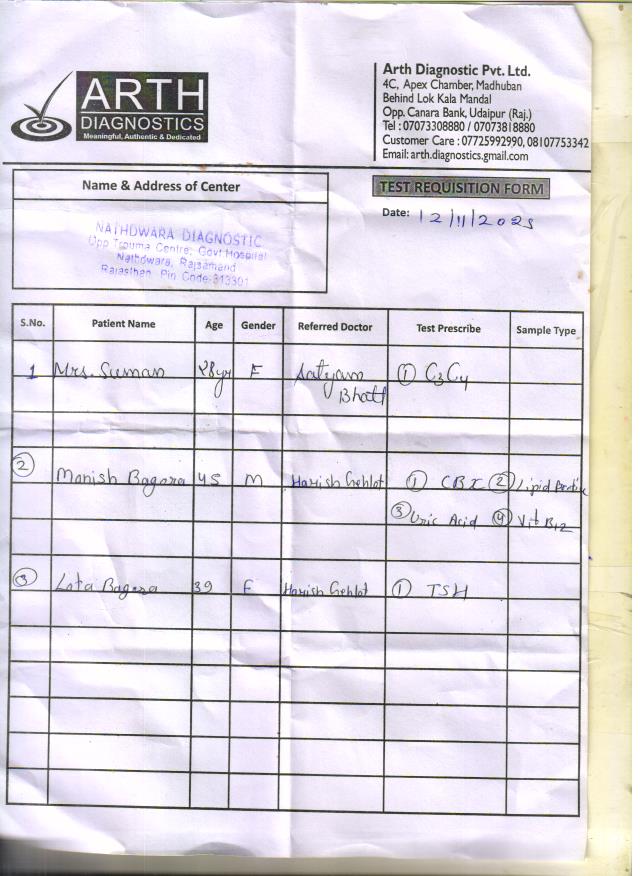 ARTH
DIAGNOSTICS
Meaningful, Authentic & Dedicated
Arth Diagnostic Pvt. Ltd.
4C, Apex Chamber, Madhuban
Behind Lok Kala Mandal
Opp. Canara Bank, Udaipur (Raj.)
Tel : 07073308880 / 07073818880
Customer Care : 07725992990, 08107753342
Email: arth.diagnostics.gmail.com
Name & Address of Center
TEST REQUISITION FORM
Date: 12/11/2025
NATHDWARA DIAGNOSTIC
Opp Trauma Centre, Govt Hospital
Nathdwara, Rajsamand
Rajasthan Pin Code-313301
S.No. Patient Name Age Gender Referred Doctor Test Prescribe Sample Type
1 Mrs. Suman 28yr F Satyam Bhatt ① C3C4
② Manish Bagora 45 M Harish Gehlot ① CBC ② Lipid Profile
③ Uric Acid ④ Vit B12
③ Lata Bagora 39 F Harish Gehlot ① TSH